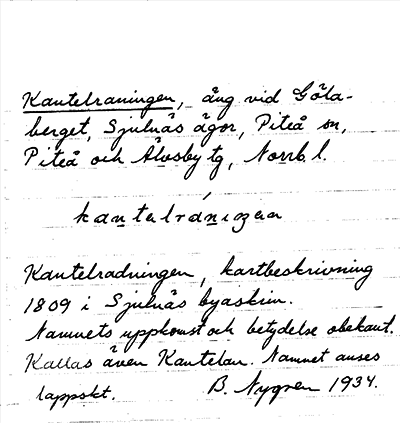 Kantelraningen, äng vid Göta-
berget, Sjulnäs ägor, Piteå sn,
Piteå och Älvsby tg, Norrb. l.
kantelrániŋen
Kantelradningen, kartbeskrivning
1809 i Sjulnäs byaskrin.
Namnets uppkomst och betydelse obekant.
Kallas även Kantelan. Namnet anses
lappskt. B. Nygren 1934.